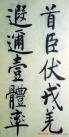 首臣伏戎羌
遐邇壹體率